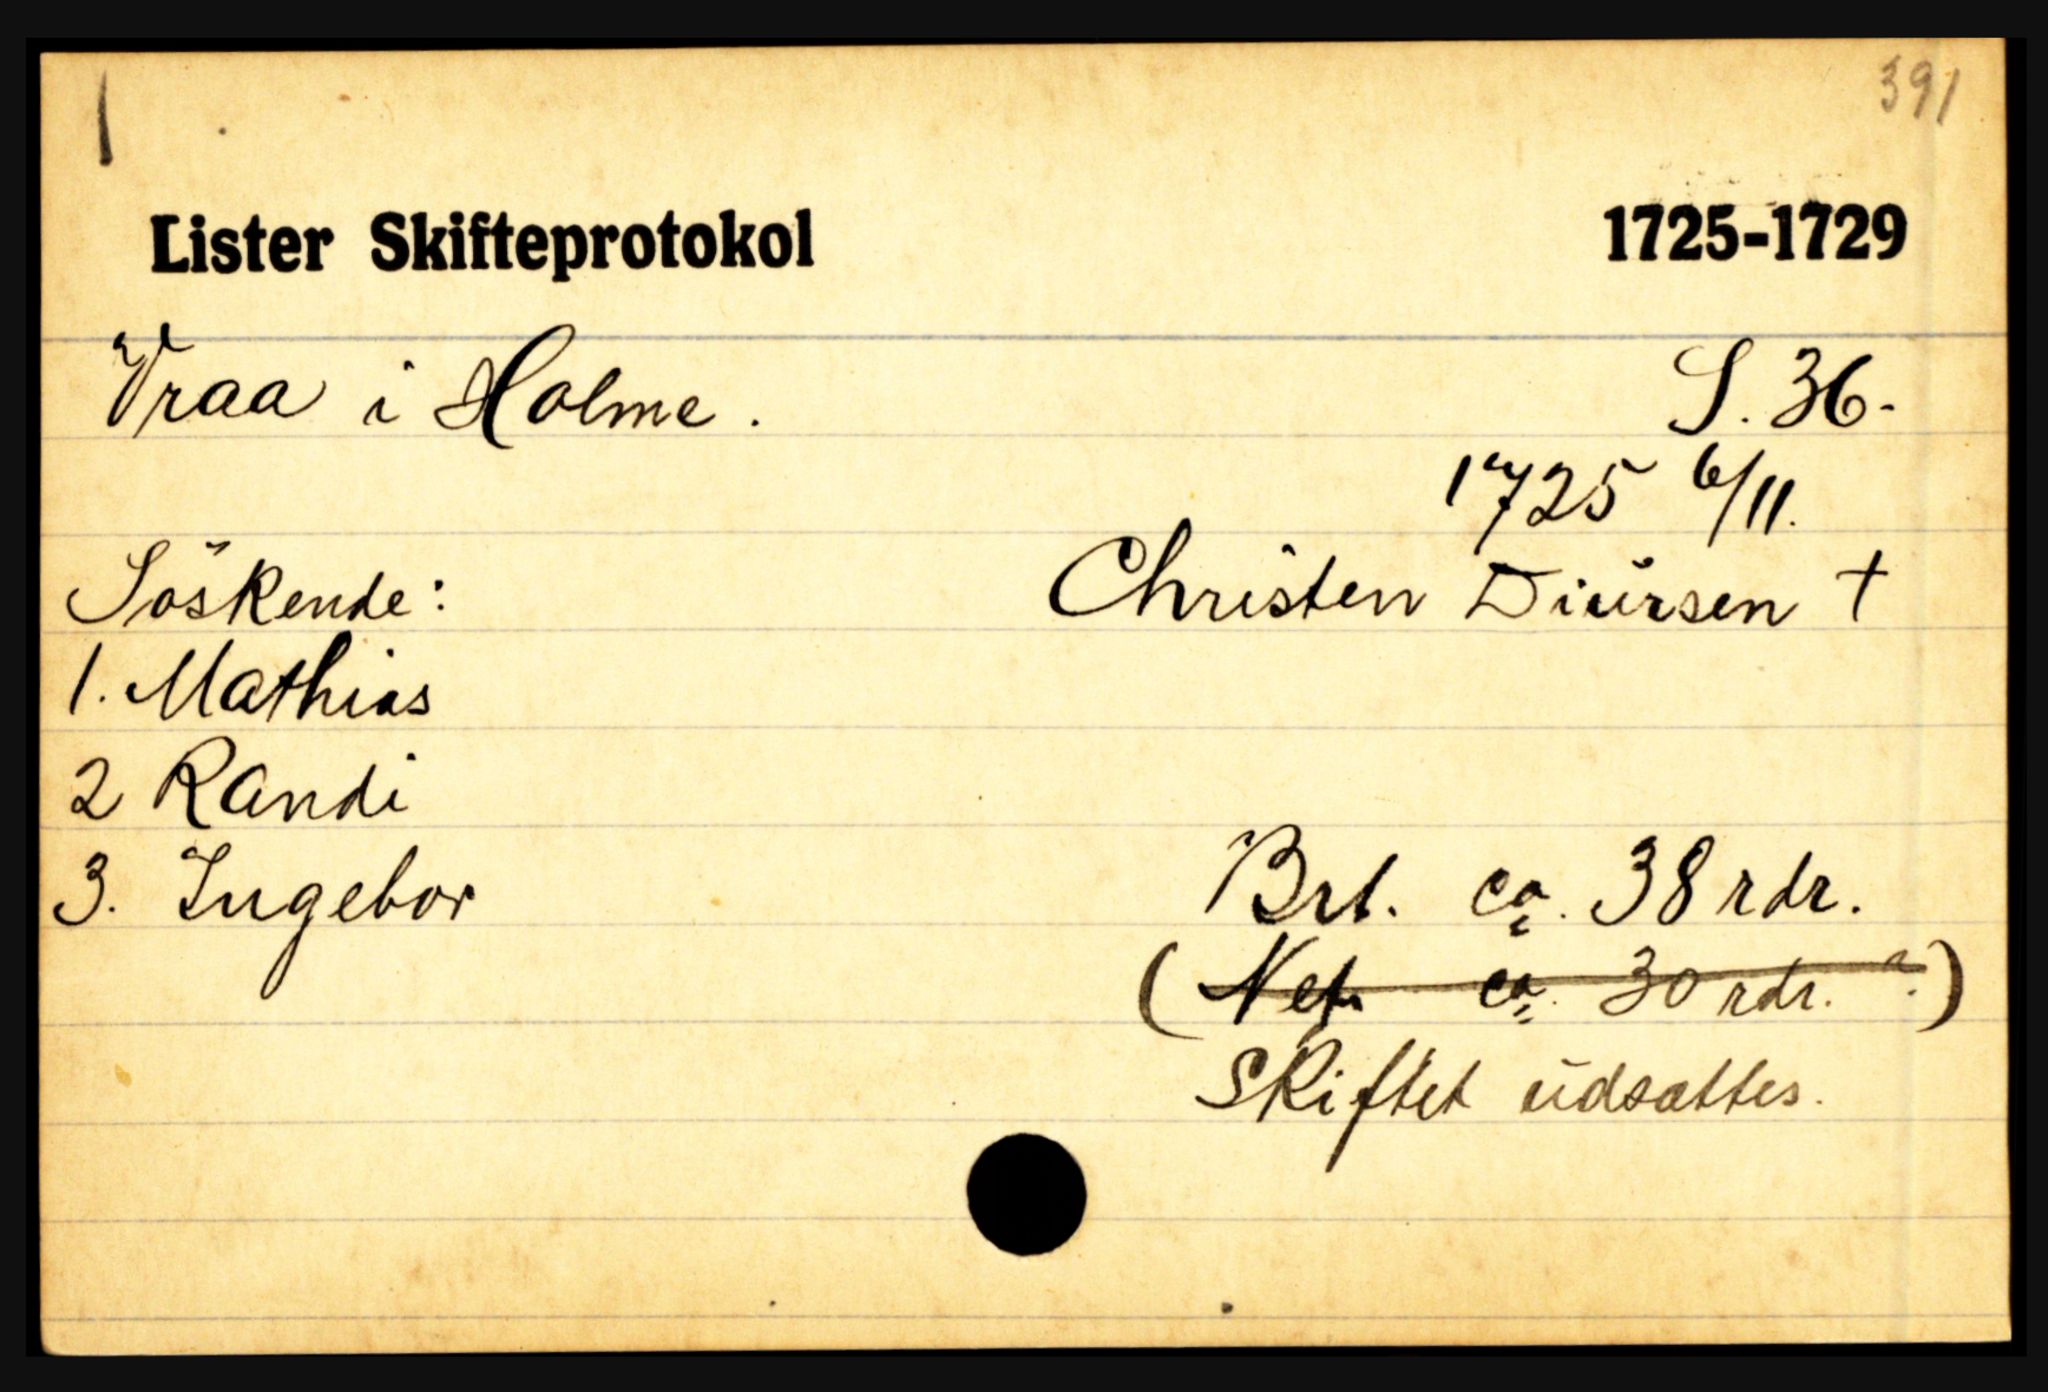 391
Lister Skifteprotokol 1725-1729
Vraa i Holme. S. 36.
1725 6/11.
Söskende: Christen Diŭrsen †
1. Mathias
2 Randi
3. Ingebor Brt. ca. 38 rdr.
(Net. ca. 30 rdr. ?)
Skiftet ūdsattes.